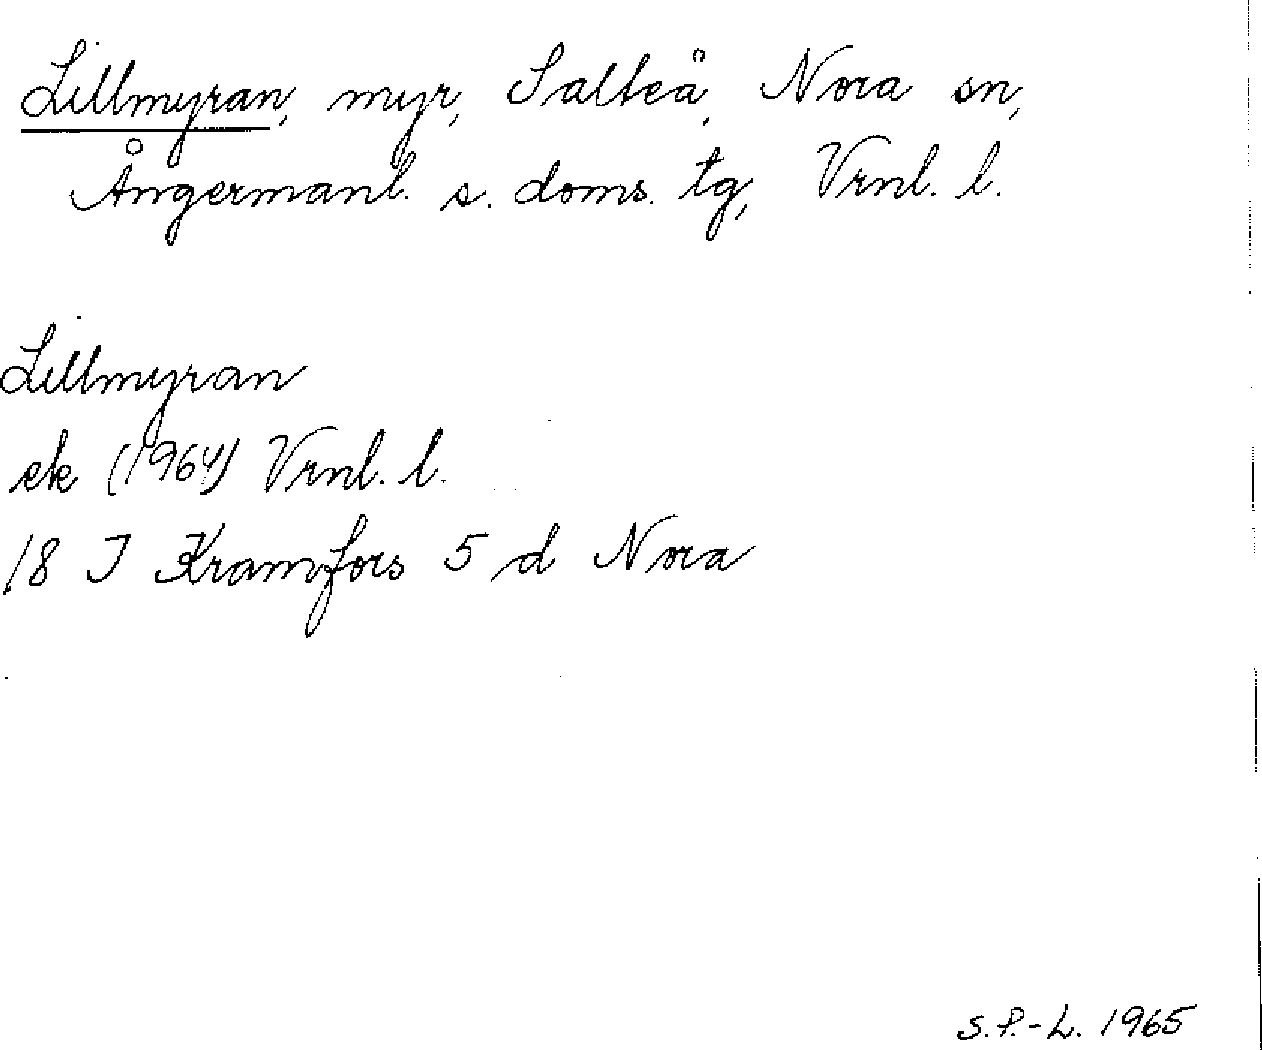 Lillmyran, myr, Salteå, Nora sn,
Ångermanl. s. doms. tg, Vrnl. l.
Lillmyran
ek (1964) Vrnl. l.
18 I Kramfors 5 d Nora
S.P.-L. 1965